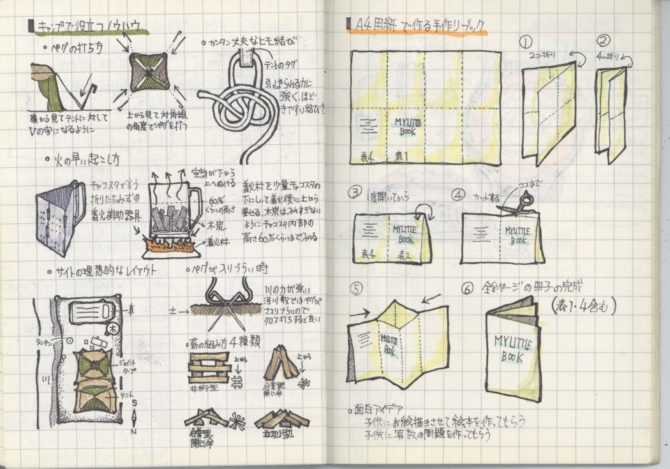 キャンプで役立つノウハウ
・ペグの打ち方
横から見てテントに対して
Vの字になるように
上から見て対角線
の角度でペグを打つ
・カンタン丈夫なヒモ結び
テントのタグ
引っぱられる力に
強く、ほど
きやすい結び!
・火の早い起こし方
チャコスタと言う
折りたたみ式の
着火補助器具
空気が下から
上へぬける
60%
くらいの高さ
木炭
着火材
着火材を少量チャコスタの
下にして着火後に上から
乗せる。木炭は
ようにチャコスタ内部の
高さ60%くらいまで
・サイトの理想的なレイアウト
川
テント
N
S
・ペグが入りづらい時
土
川の力が強い
河川敷ではペグが
ささりづらいので
クロス打ちすると良い
・薪の組み方4種類
上から
上から
井桁型
合掌型
A4用紙で作る手作りブック
表4
表1
MY LITTLE
BOOK
①
2つ折り
②
4つ折り
③
1度開いてから
表4
表1
MY LITTLE
BOOK
④
カットする
ココまで!
MY LITTLE
BOOK
⑤
MY LITTLE
BOOK
⑥ 全8ページの冊子の完成
(表1・4含む)
MY LITTLE
BOOK
・面白アイデア
子供にお絵描きさせて絵本を作ってもらう
子供に算数の問題を作ってもらう